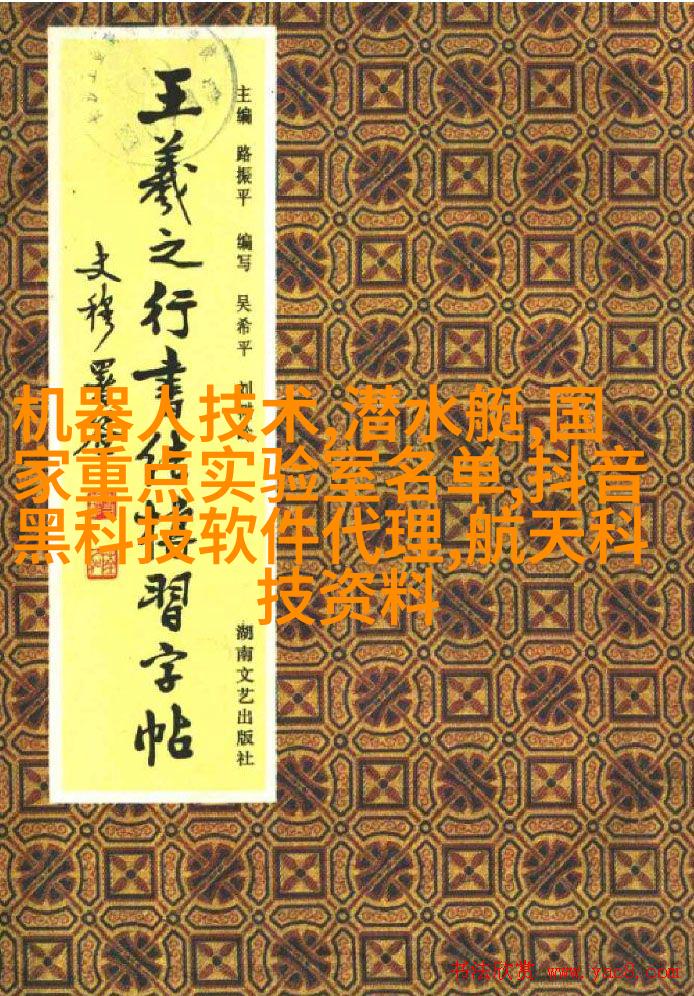 王羲之行书结构习字帖
史穆署签
主编 路振平 编写 吴希平 刘
湖南文艺出版社
机器人技术,潜水艇,国
家重点实验室名单,抖音
黑科技软件代理,航天科
技资料
书法欣赏 www.yac8.com